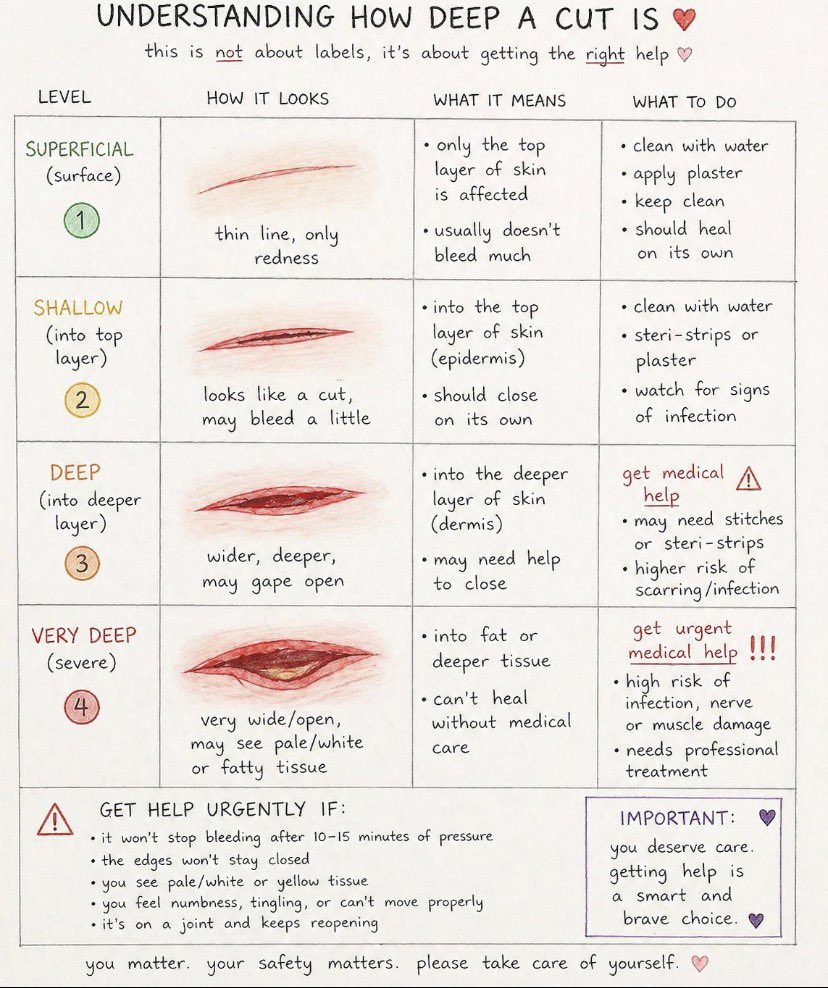 UNDERSTANDING HOW DEEP A CUT IS
this is not about labels, it's about getting the right help
LEVEL
HOW IT LOOKS
WHAT IT MEANS
WHAT TO DO
SUPERFICIAL
(surface)
1
thin line, only
redness
• only the top
layer of skin
is affected
• usually doesn't
bleed much
• clean with water
• apply plaster
• keep clean
• should heal
on its own
SHALLOW
(into top
layer)
2
looks like a cut,
may bleed a little
• into the top
layer of skin
(epidermis)
• should close
on its own
• clean with water
• steri-strips or
plaster
• watch for signs
of infection
DEEP
(into deeper
layer)
3
wider, deeper,
may gape open
• into the deeper
layer of skin
(dermis)
• may need help
to close
get medical
help
• may need stitches
or steri-strips
• higher risk of
scarring/infection
VERY DEEP
(severe)
4
very wide/open,
may see pale/white
or fatty tissue
• into fat or
deeper tissue
• can't heal
without medical
care
get urgent
medical help !!!
• high risk of
infection, nerve
or muscle damage
• needs professional
treatment
GET HELP URGENTLY IF:
• it won't stop bleeding after 10-15 minutes of pressure
• the edges won't stay closed
• you see pale/white or yellow tissue
• you feel numbness, tingling, or can't move properly
• it's on a joint and keeps reopening
IMPORTANT:
you deserve care.
getting help is
a smart and
brave choice.
you matter. your safety matters. please take care of yourself.